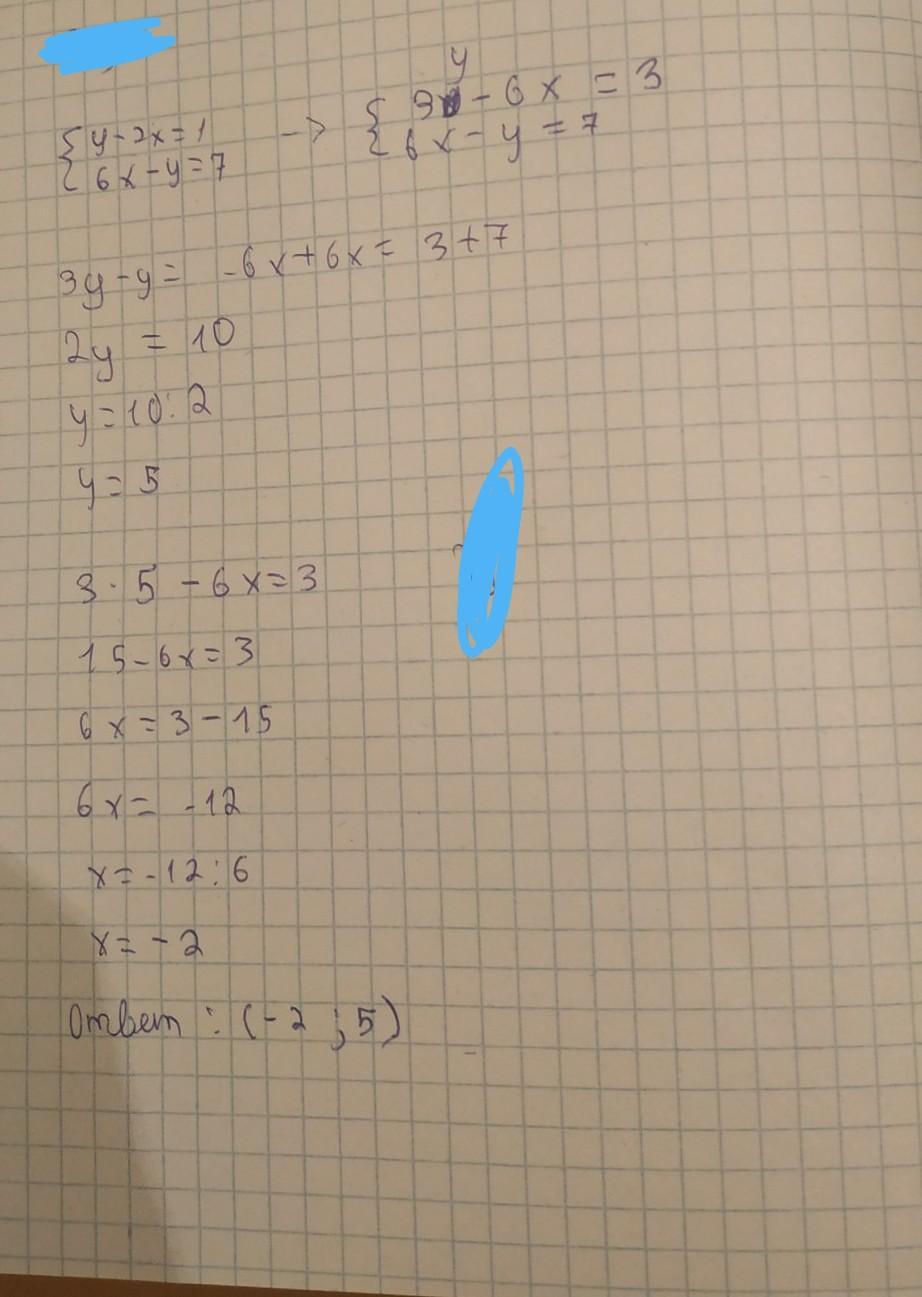 { y - 2x = 1 -> { 3y - 6x = 3
{ 6x - y = 7 { 6x - y = 7
3y - y = -6x + 6x = 3 + 7
2y = 10
y = 10 : 2
y = 5
3 · 5 - 6x = 3
15 - 6x = 3
6x = 3 - 15
6x = -12
x = -12 : 6
x = -2
Ответ : (-2 ; 5)